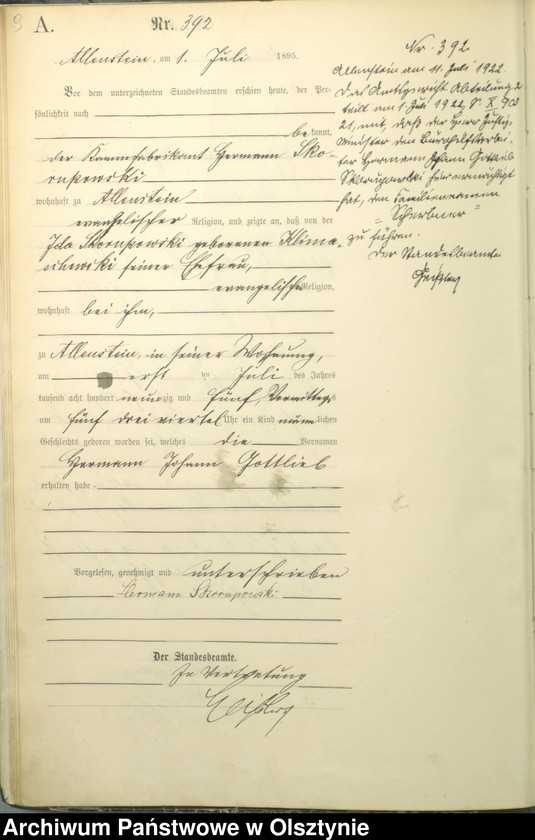 A.
Nr. 392
Allenstein, am 1. Juli 1895.
Vor dem unterzeichneten Standesbeamten erschien heute, der Per-
sönlichkeit nach
bekannt,
der Kammfabrikant Hermann Sko-
rupowski
wohnhaft zu Allenstein
evangelischer Religion, und zeigte an, daß von der
Ida Skorupowski geborenen Klima-
schewski seiner Ehefrau,
evangelischer Religion,
wohnhaft bei ihm,
zu Allenstein, in seiner Wohnung,
am erst ten Juli des Jahres
tausend acht hundert neunzig und fünf, Vormittags
um fünf dreiviertel Uhr ein Kind männlichen
Geschlechts geboren worden sei, welches die Vornamen
Hermann Johann Gottlieb
erhalten habe.
Vorgelesen, genehmigt und unterschrieben
Hermann Skorupowski
Der Standesbeamte.
In Vertretung
Nr. 392.
Allenstein am 11. Juli 1922
Das Amtsgericht Abteilung 2
teilt am 1. Juli 1922, 903
21, mit, daß der Herr Justiz-
minister den
Hermann Johann Gottlieb
Skorupowski hier ermächtigt
hat, den Familiennamen
zu führen.
Der Standesbeamte
Archiwum Państwowe w Olsztynie